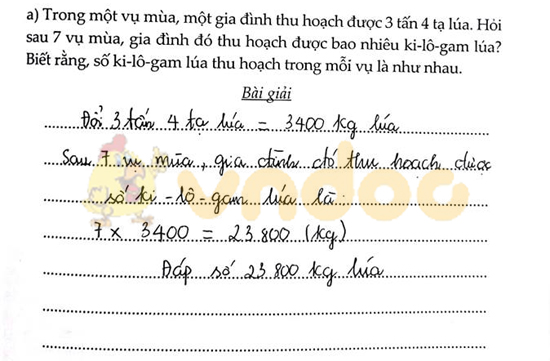 a) Trong một vụ mùa, một gia đình thu hoạch được 3 tấn 4 tạ lúa. Hỏi
sau 7 vụ mùa, gia đình đó thu hoạch được bao nhiêu ki-lô-gam lúa?
Biết rằng, số ki-lô-gam lúa thu hoạch trong mỗi vụ là như nhau.
Bài giải
Đổi 3 tấn 4 tạ lúa = 3400 kg lúa
Sau 7 vụ mùa, gia đình đó thu hoạch được
số ki-lô-gam lúa là:
7 x 3400 = 23.800 (kg)
Đáp số 23.800 kg lúa
vndoc